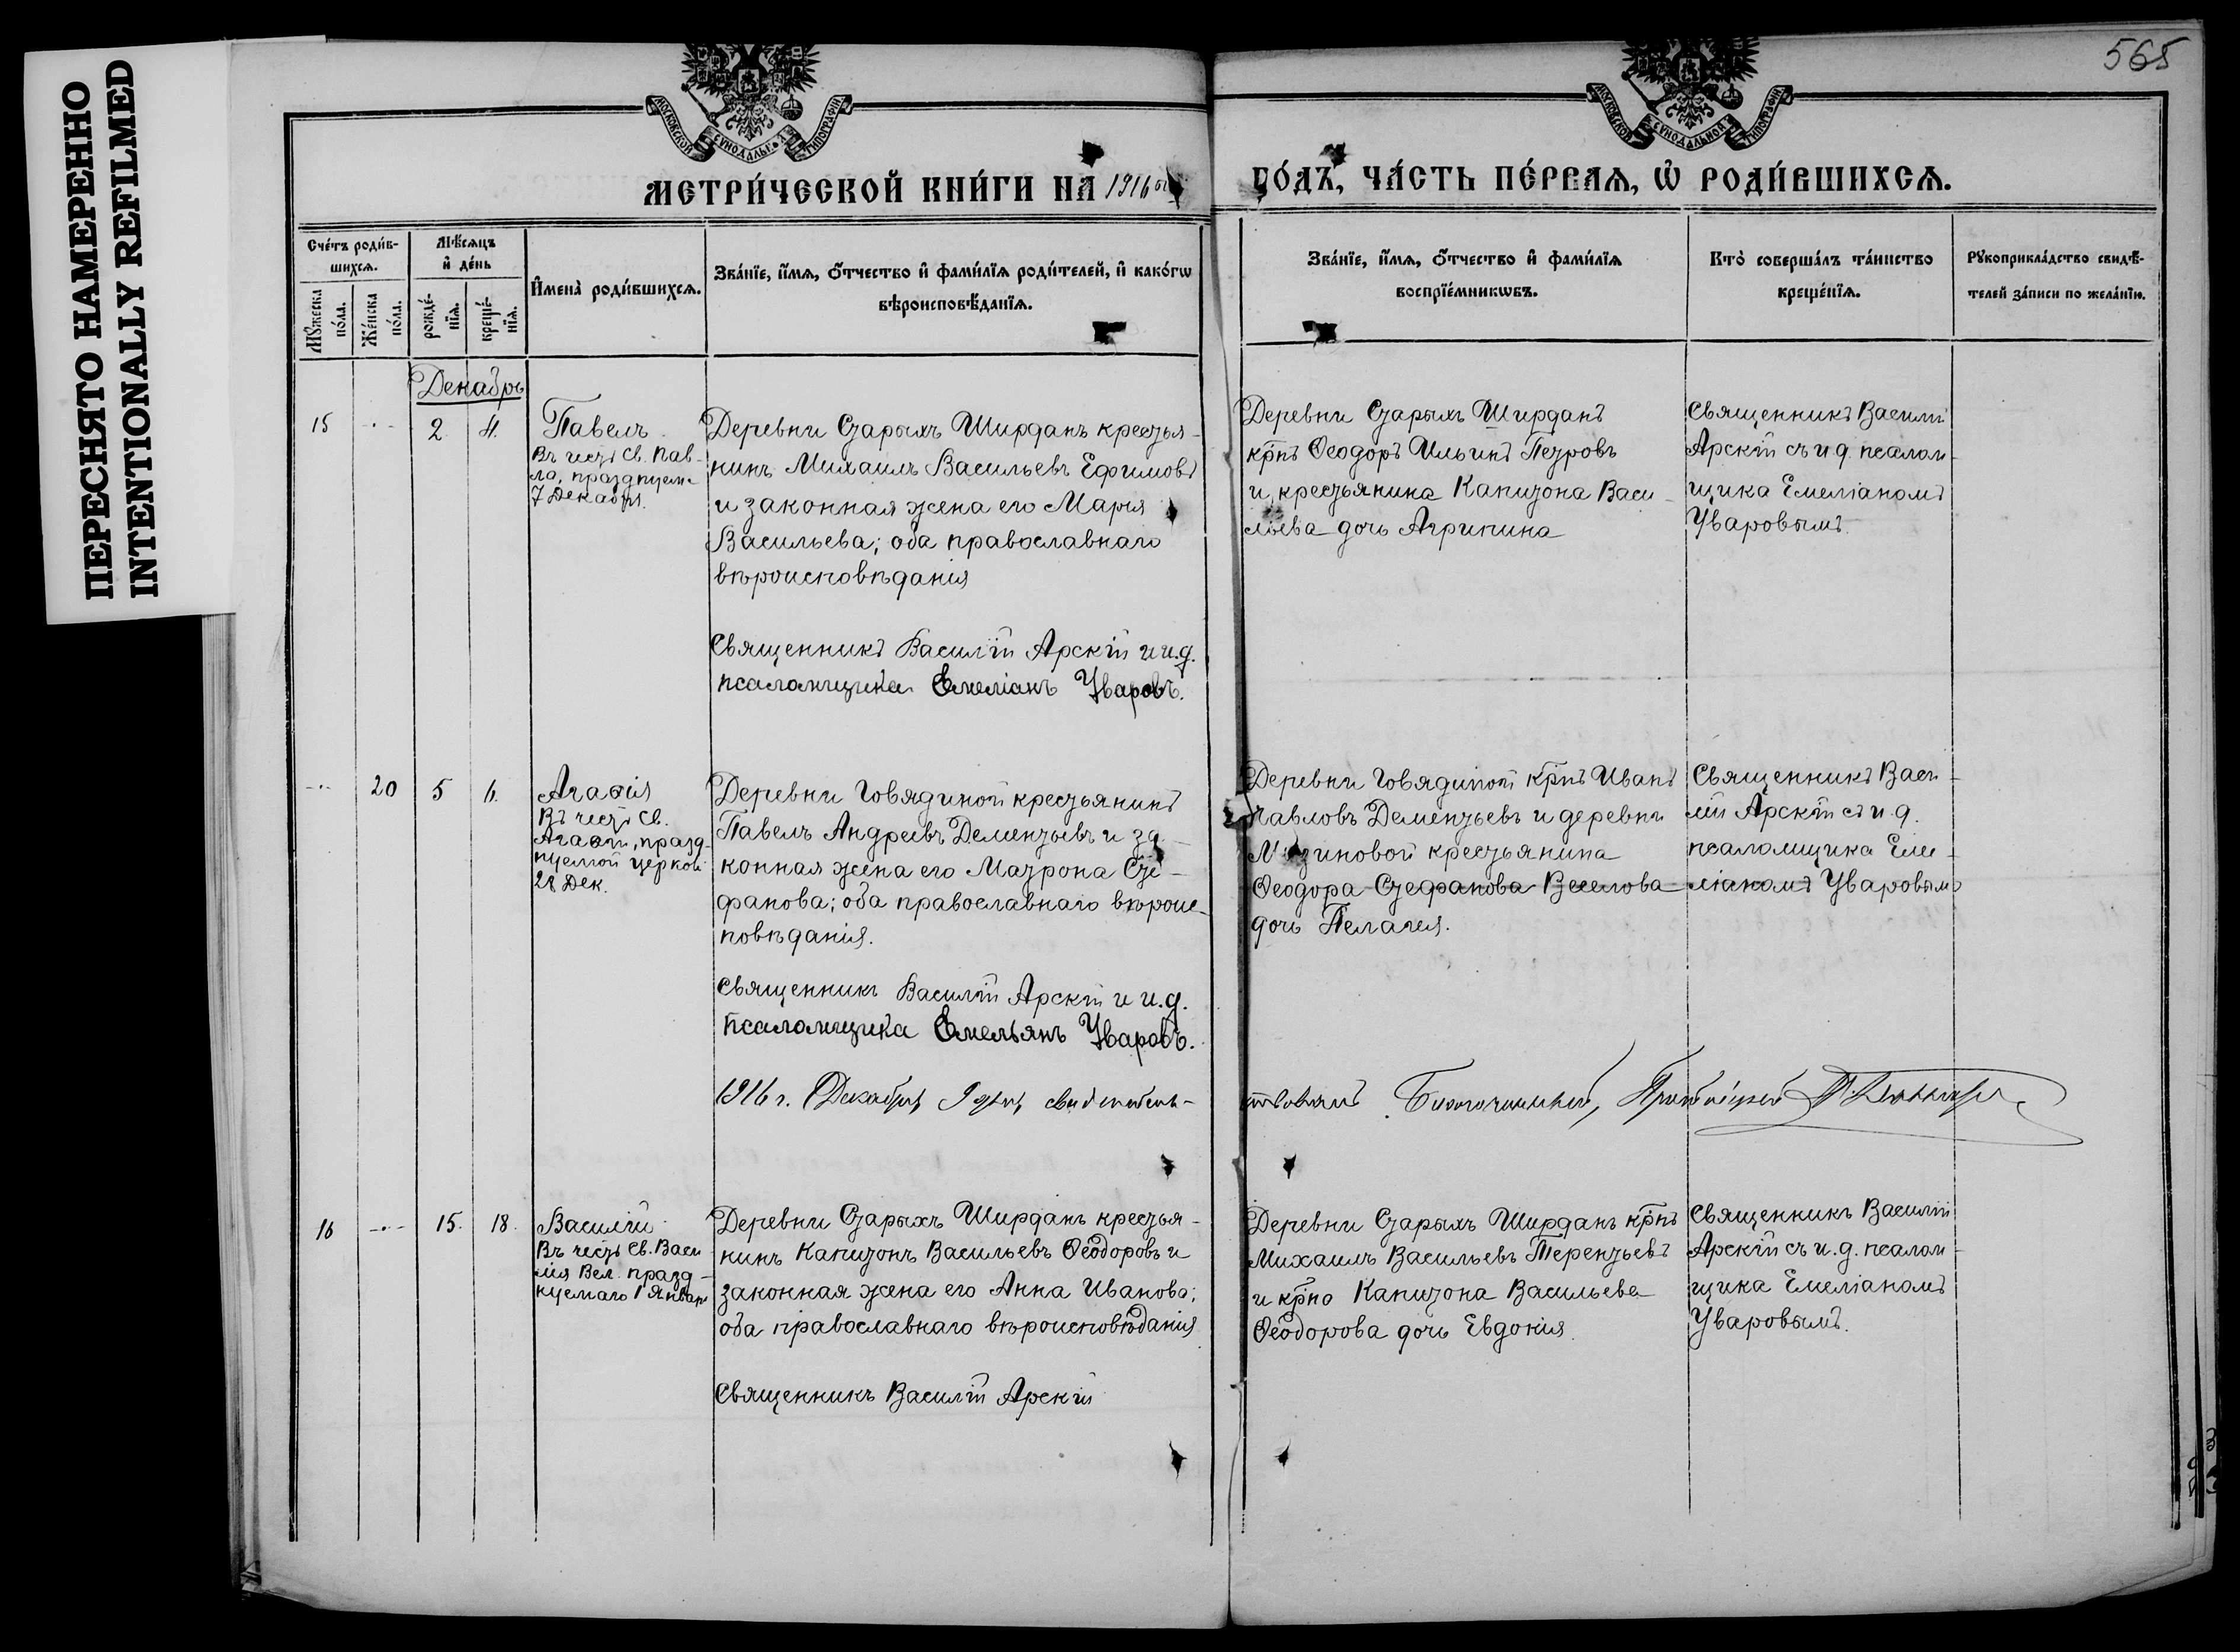 ПЕРЕСНЯТО НАМЕРЕННО
INTENTIONALLY REFILMED
565
МОСКОВСКОЙ СѴНОДАЛЬНОЙ ТИПОГРАФІИ
МОСКОВСКОЙ СѴНОДАЛЬНОЙ ТИПОГРАФІИ
МЕТРИ́ЧЕСКОЙ КНИ́ГИ НА 1916ый ГО́ДЪ, ЧА́СТЬ ПЕ́РВАЯ, Ѡ҆ РОДИ́ВШИХСЯ.
Сче́тъ роди́в-
шихся.
Мꙋ́жеска
по́ла.
Же́нска
по́ла.
Мѣ́сяцъ
и҆ де́нь
рожде́-
нїя.
креще́-
нїя.
И҆мена̀ роди́вшихся.
Зва́нїе, и҆́мя, ѻ҆́тчество и҆ фами́лїя роди́телей, и҆ како́гѡ
вѣроисповѣ́данїя.
Зва́нїе, и҆́мя, ѻ҆́тчество и҆ фами́лїя
воспрїе́мникѡвъ.
Кто̀ соверша́лъ та́инство
креще́нїя.
Рꙋкоприкла́дство свидѣ́-
телей за́писи по жела́нїю.
Декабрь
15
2
4.
Павелъ
Въ честь Св. Пав-
ла, празднуем.
7 Декабря.
Деревни Старыхъ Ширданъ крестья-
нинъ Михаилъ Васильевъ Ефимовъ
и законная жена его Марія
Васильева; оба православнаго
вѣроисповѣданія
Священникъ Василій Арскій и и.д.
псаломщика Емеліанъ Уваровъ.
Деревни Старыхъ Ширданъ
крнъ Ѳеодоръ Ильинъ Петровъ
и крестьянина Капитона Васи-
льева дочь Агрипина
Священникъ Василій
Арскій съ и д. псалом-
щика Емеліаномъ
Уваровымъ.
20
5
6.
Агаѳія
Въ честь Св.
Агаѳіи, празд-
нуемой церков.
28 Дек.
Деревни Говядиной крестьянинъ
Павелъ Андреевъ Дементьевъ и за-
конная жена его Матрона Сте-
фанова; оба православнаго вѣроис-
повѣданія.
Священникъ Василій Арскій и и.д.
псаломщика Емельянъ Уваровъ.
Деревни Говядиной крнъ Иванъ
Павловъ Дементьевъ и деревни
Мизиновой крестьянина
Ѳеодора Стефанова Веселова
дочь Пелагея.
Священникъ Васи-
лій Арскій съ и.д.
псаломщика Еме-
ліаномъ Уваровымъ
1916 г. Декабря 9 дня, свидѣтель-
ствовалъ Благочинный, Протоіерей
16
15.
18.
Василій
Въ честь Св. Васи
лія Вел. празд-
нуемаго 1 Января
Деревни Старыхъ Ширданъ крестья-
нинъ Капитонъ Васильевъ Ѳеодоровъ и
законная жена его Анна Иванова;
оба православнаго вѣроисповѣданія
Священникъ Василій Арскій
Деревни Старыхъ Ширданъ крнъ
Михаилъ Васильевъ Терентьевъ
и крна Капитона Васильева
Ѳеодорова дочь Евдокія.
Священникъ Василій
Арскій съ и.д. псалом-
щика Емеліаномъ
Уваровымъ.